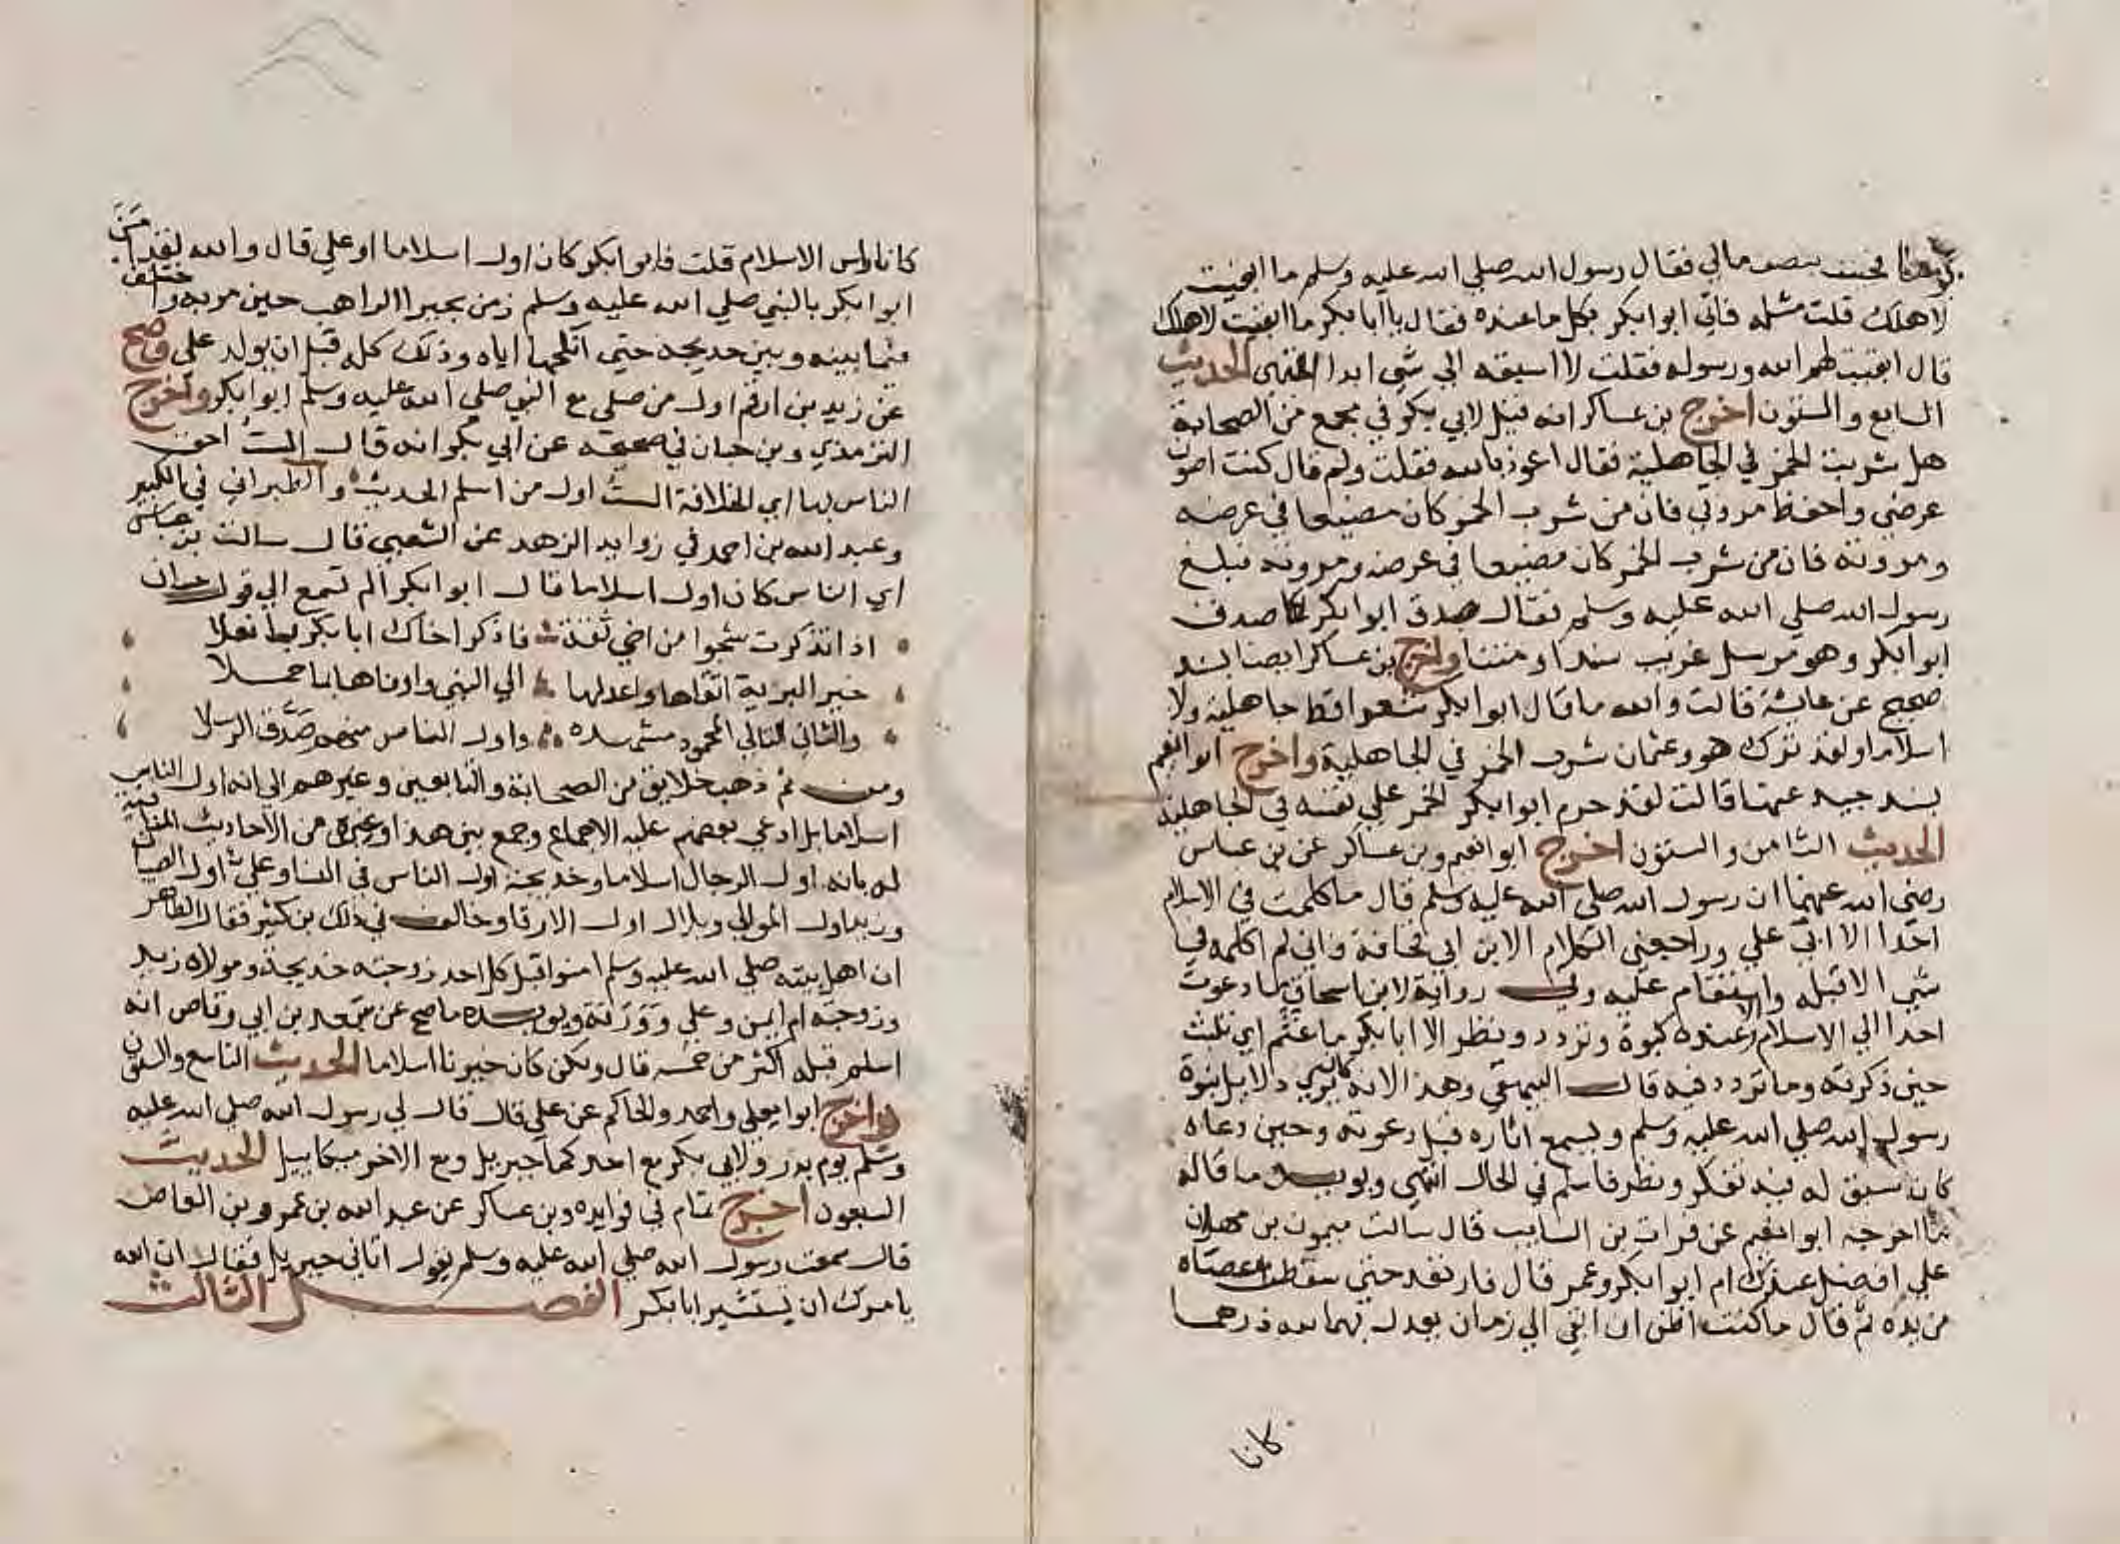 يوما فجئت بنصف مالي فقال رسول الله صلي الله عليه وسلم ما ابقيت
لاهلك قلت مثله فاتي ابوا بكر بكل ما عنده فقال يا ابا بكر ما ابقيت لاهلك
قال ابقيت لهم الله ورسوله فقلت لا اسبقه الي شي ابدا انتهى الحديث
السابع والستون اخرج بن عساكر انه قيل لابي بكر في مجمع من الصحابة
هل شربت الخمر في الجاهلية فقال اعوذ بالله فقلت ولم قال كنت اصون
عرضي واحفظ مروتي فان من شرب الخمر كان مضيعا في عرضه
ومروته فان من شرب الخمر كان مضيعا في عرضه ومروته فبلغ
رسول الله صلي الله عليه وسلم فقال صدق ابوا بكر صدق
ابوا بكر وهو مرسل غريب سندا ومتنا واخرج بن عساكر ايضا بسند
صحيح عن عايشة قالت والله ما قال ابوا بكر شعرا قط جاهلية ولا
اسلاما ولقد ترك هو وعثمان شرب الخمر في الجاهلية واخرج ابوا نعيم
بسند جيد عنها قالت لقد حرم ابوا بكر الخمر علي نفسه في الجاهلية
الحديث الثامن والستون اخرج ابوا نعيم وبن عساكر عن بن عباس
رضي الله عنهما ان رسول الله صلي الله عليه وسلم قال ما كلمت في الاسلام
احدا الا ابى علي وراجعني الكلام الا بن ابي قحافة فاني لم اكلمه في
شي الا قبله واستقام عليه وفي رواية لابن اسحاق ما دعوت
احدا الي الاسلام الا عنده كبوة وتردد ونظر الا ابا بكر ما عتم اي تلبث
حين ذكرته وما تردد فيه قال البيهقي وهذا لانه كان يري دلايل نبوة
رسول الله صلي الله عليه وسلم ويسمع اثاره قبل دعوته وحين دعاه
كان سبق له فيه تفكر ونظر فاسلم في الحال انتهي ويويده ما قاله
ما اخرجه ابوا نعيم عن فرات بن السايب قال سالت ميمون بن مهران
علي افضل عندك ام ابوا بكر وعمر قال فارتعد حتي سقطت عصاه
من يده ثم قال ما كنت اظن ان ابقي الي زمان يعدل بهما لله درهما
كانا
كانا راس الاسلام قلت فابوا بكر كان اول اسلاما او علي قال والله لقد امن
ابوا بكر بالنبي صلي الله عليه وسلم زمن بحيرا الراهب حين مر به واختلف
فيما بينه وبين خديجة حتي انكحها اياه وذلك كله قبل ان يولد علي وصح
عن زيد بن ارقم اول من صلي مع النبي صلي الله عليه وسلم ابوا بكر واخرج
الترمذي وبن حبان في صحيحه عن ابي بكر انه قال الست احق
الناس بها اي الخلافة الست اول من اسلم الحديث والطبراني في الكبير
وعبد الله بن احمد في زوايد الزهد عن الشعبي قال سالت بن عباس
اي الناس كان اول اسلاما قال ابوا بكر الم تسمع الي قول حسان
اذا تذكرت شجوا من اخي ثقة فاذكر اخاك ابا بكر بما فعلا
خير البرية اتقاها واعدلها الي النبي واوفاها بما حملا
والثاني التالي المحمود مشهده واول الناس منهم صدق الرسلا
ومن ثم ذهب خلايق من الصحابة والتابعين وغيرهم الي انه اول الناس
اسلاما بل ادعي بعضهم عليه الاجماع وجمع بين هذا وغيره من الاحاديث المنافية
له بانه اول الرجال اسلاما وخديجة اول الناس في النسا وعلي اول الصبيان
وزيد اول الموالي وبلال اول الارقا وخالف في ذلك بن كثير فقال الظاهر
ان اهل بيته صلي الله عليه وسلم امنوا قبل كل احد زوجته خديجة ومولاه زيد
وزوجته ام ايمن وعلي وورقة ويويده ما صح عن سعد بن ابي وقاص انه
اسلم قبله اكثر من خمسة قال ولكن كان خيرنا اسلاما الحديث التاسع والستون
واخرج ابوا يعلي واحمد والحاكم عن علي قال قال لي رسول الله صلي الله عليه
وسلم يوم بدر ولابي بكر مع احدكما جبريل ومع الاخر ميكاييل الحديث
السبعون اخرج تمام في فوايده وبن عساكر عن عبد الله بن عمرو بن العاص
قال سمعت رسول الله صلي الله عليه وسلم يقول اتاني جبريل فقال ان الله
يامرك ان تستشير ابا بكر الفصل الثالث